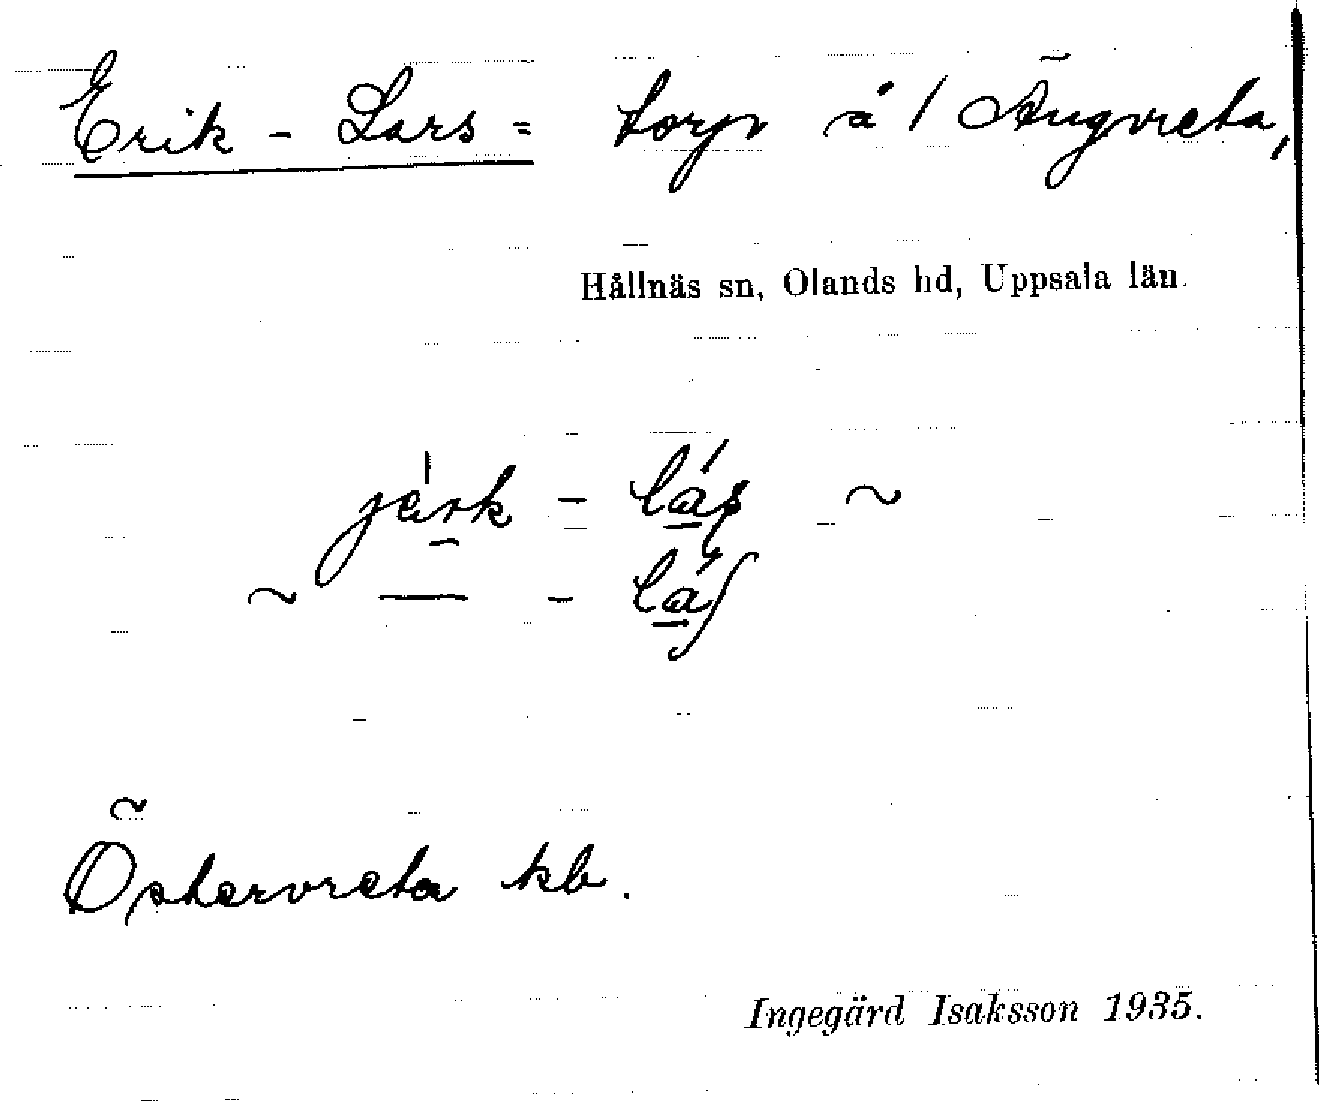 Erik - Lars = torp å / Ängvreta,
Hållnäs sn, Olands hd, Uppsala län.
järk - las ~
~ — - las
Östervreta kb.
Ingegärd Isaksson 1935.